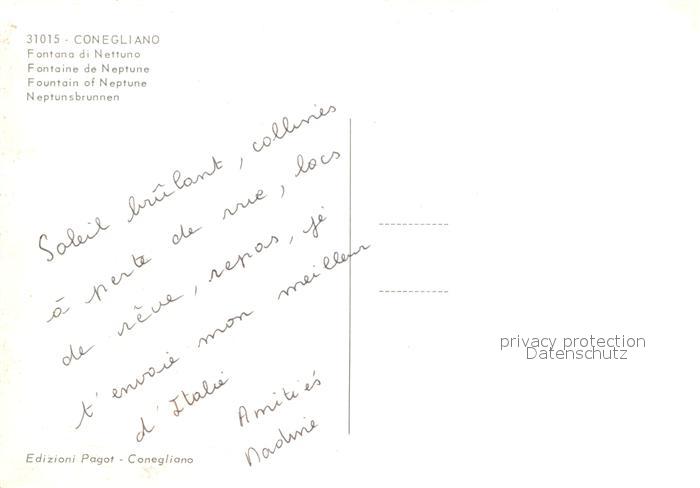 31015 - CONEGLIANO
Fontana di Nettuno
Fontaine de Neptune
Fountain of Neptune
Neptunsbrunnen
Soleil brûlant, collines
à perte de vue, lacs
de rêve, repas, je
t'envoie mon meilleur
d'Italie
Amitiés
Nadine
Edizioni Pagot - Conegliano
privacy protection
Datenschutz